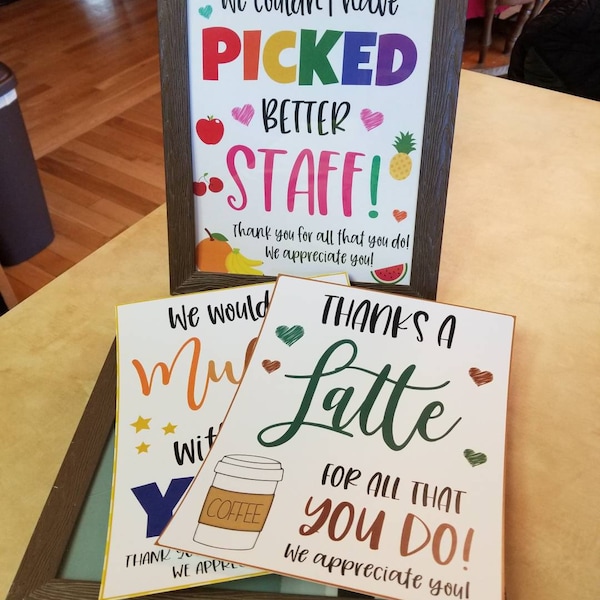 We couldn't have
PICKED
BETTER
STAFF!
Thank you for all that you do!
We appreciate you!
We would
With
THANK
WE APPREC
THANKS A
Latte
FOR ALL THAT
YOU DO!
We appreciate you!
COFFEE